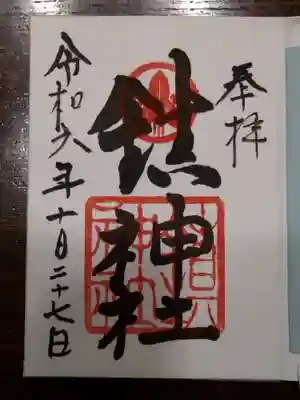 奉拝
鎮神社
令和六年十月二十七日